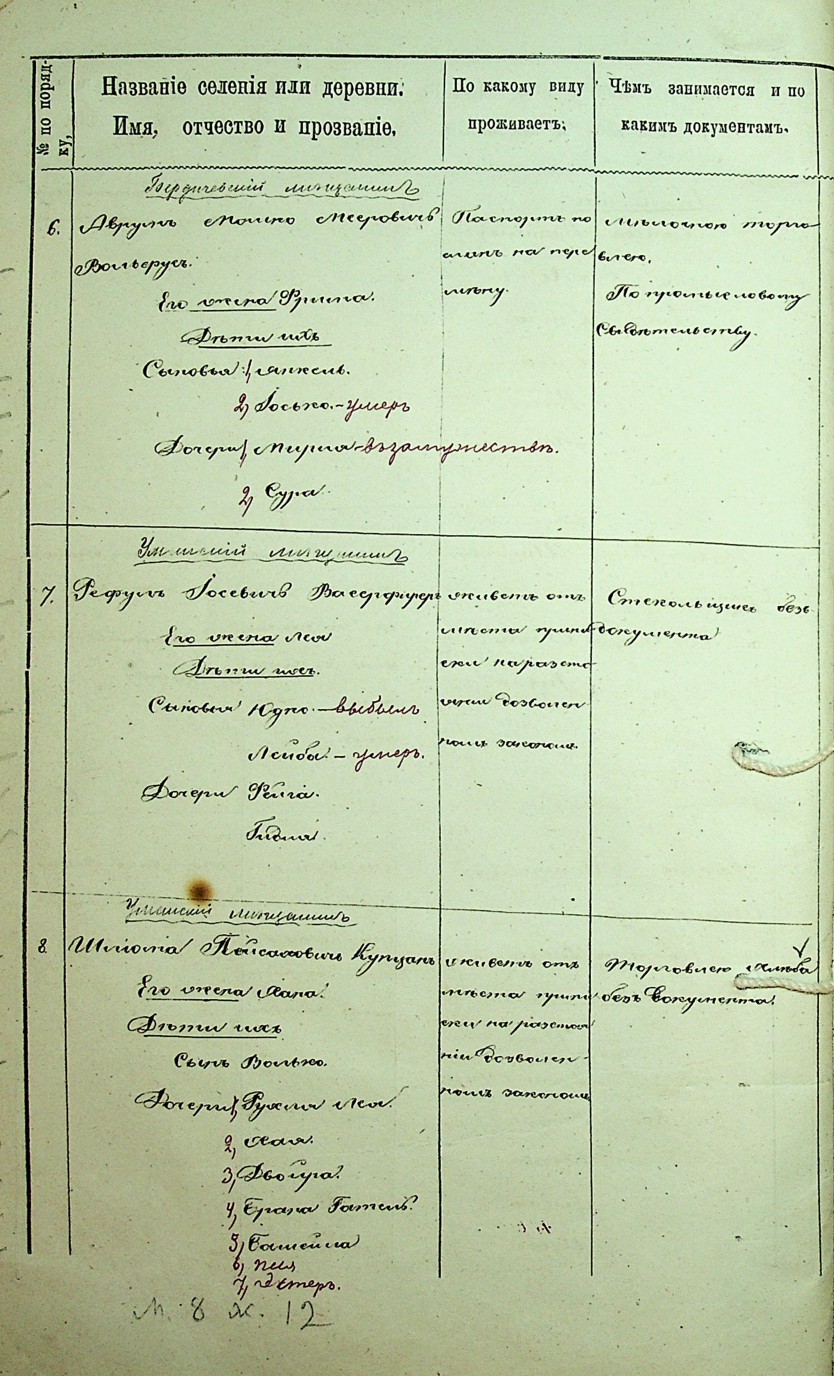 № по поряд-
ку,
Названіе селенія или деревни.
Имя, отчество и прозваніе.
По какому виду
проживаетъ.
Чѣмъ занимается и по
какимъ документамъ.
Бердичевскій мѣщанинъ
6.
Аврумъ Мошко Мееровичъ
Вольерусъ.
Его жена Фрима.
Дѣти ихъ
Сыновья: 1, Янкель.
2, Іосько. - умеръ
Дочери 1, Мирля - въ замужествѣ.
2, Сура.
Паспортъ по
сланъ на пере
мѣну.
Мѣлочною торго
влею.
По промысловому
Свидѣтельству.
Уманскій мѣщанинъ
7.
Рефулъ Іосевичъ
Его жена Лея
Дѣти ихъ.
Сыновья Юдко. - выбылъ
Лейба. - умеръ.
Дочери Рейга.
Гидля.
живетъ отъ
мѣста припи
ски на разсто
яніи дозволен
номъ закономъ.
Стекольщикъ безъ
документа
Уманскій мѣщанинъ
8.
Шліома Пейсаховичъ Купцанъ
Его жена Хана.
Дѣти ихъ
Сынъ Волько.
Дочери 1, Рухля Лея.
2, Хая.
3, Двойра.
4, Брана Гатель.
5, Башейла
6, Песя
7, Эстеръ.
живетъ отъ
мѣста припи
ски на разстоя
ніи дозволен-
номъ закономъ
Торговлею хлѣба
безъ документа.
М. 8 ж. 12